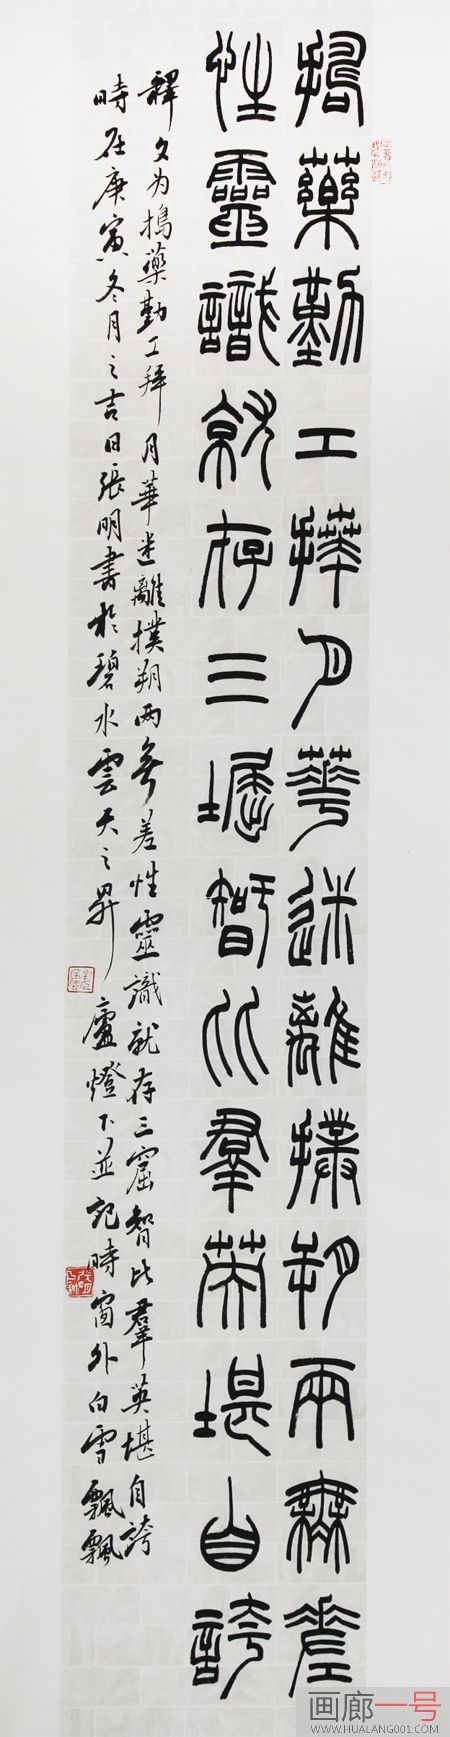 搗藥勤工拜月華迷離撲朔兩無差
性靈識就存三窟智比羣英堪自誇
釋文为搗藥勤工拜月華迷離撲朔兩無差性靈識就存三窟智比羣英堪自誇
時在庚寅冬月之吉日張明書於碧水雲天之昇廬燈下並記時窗外白雪飄飄
画廊一号
WWW.HUALANG001.COM